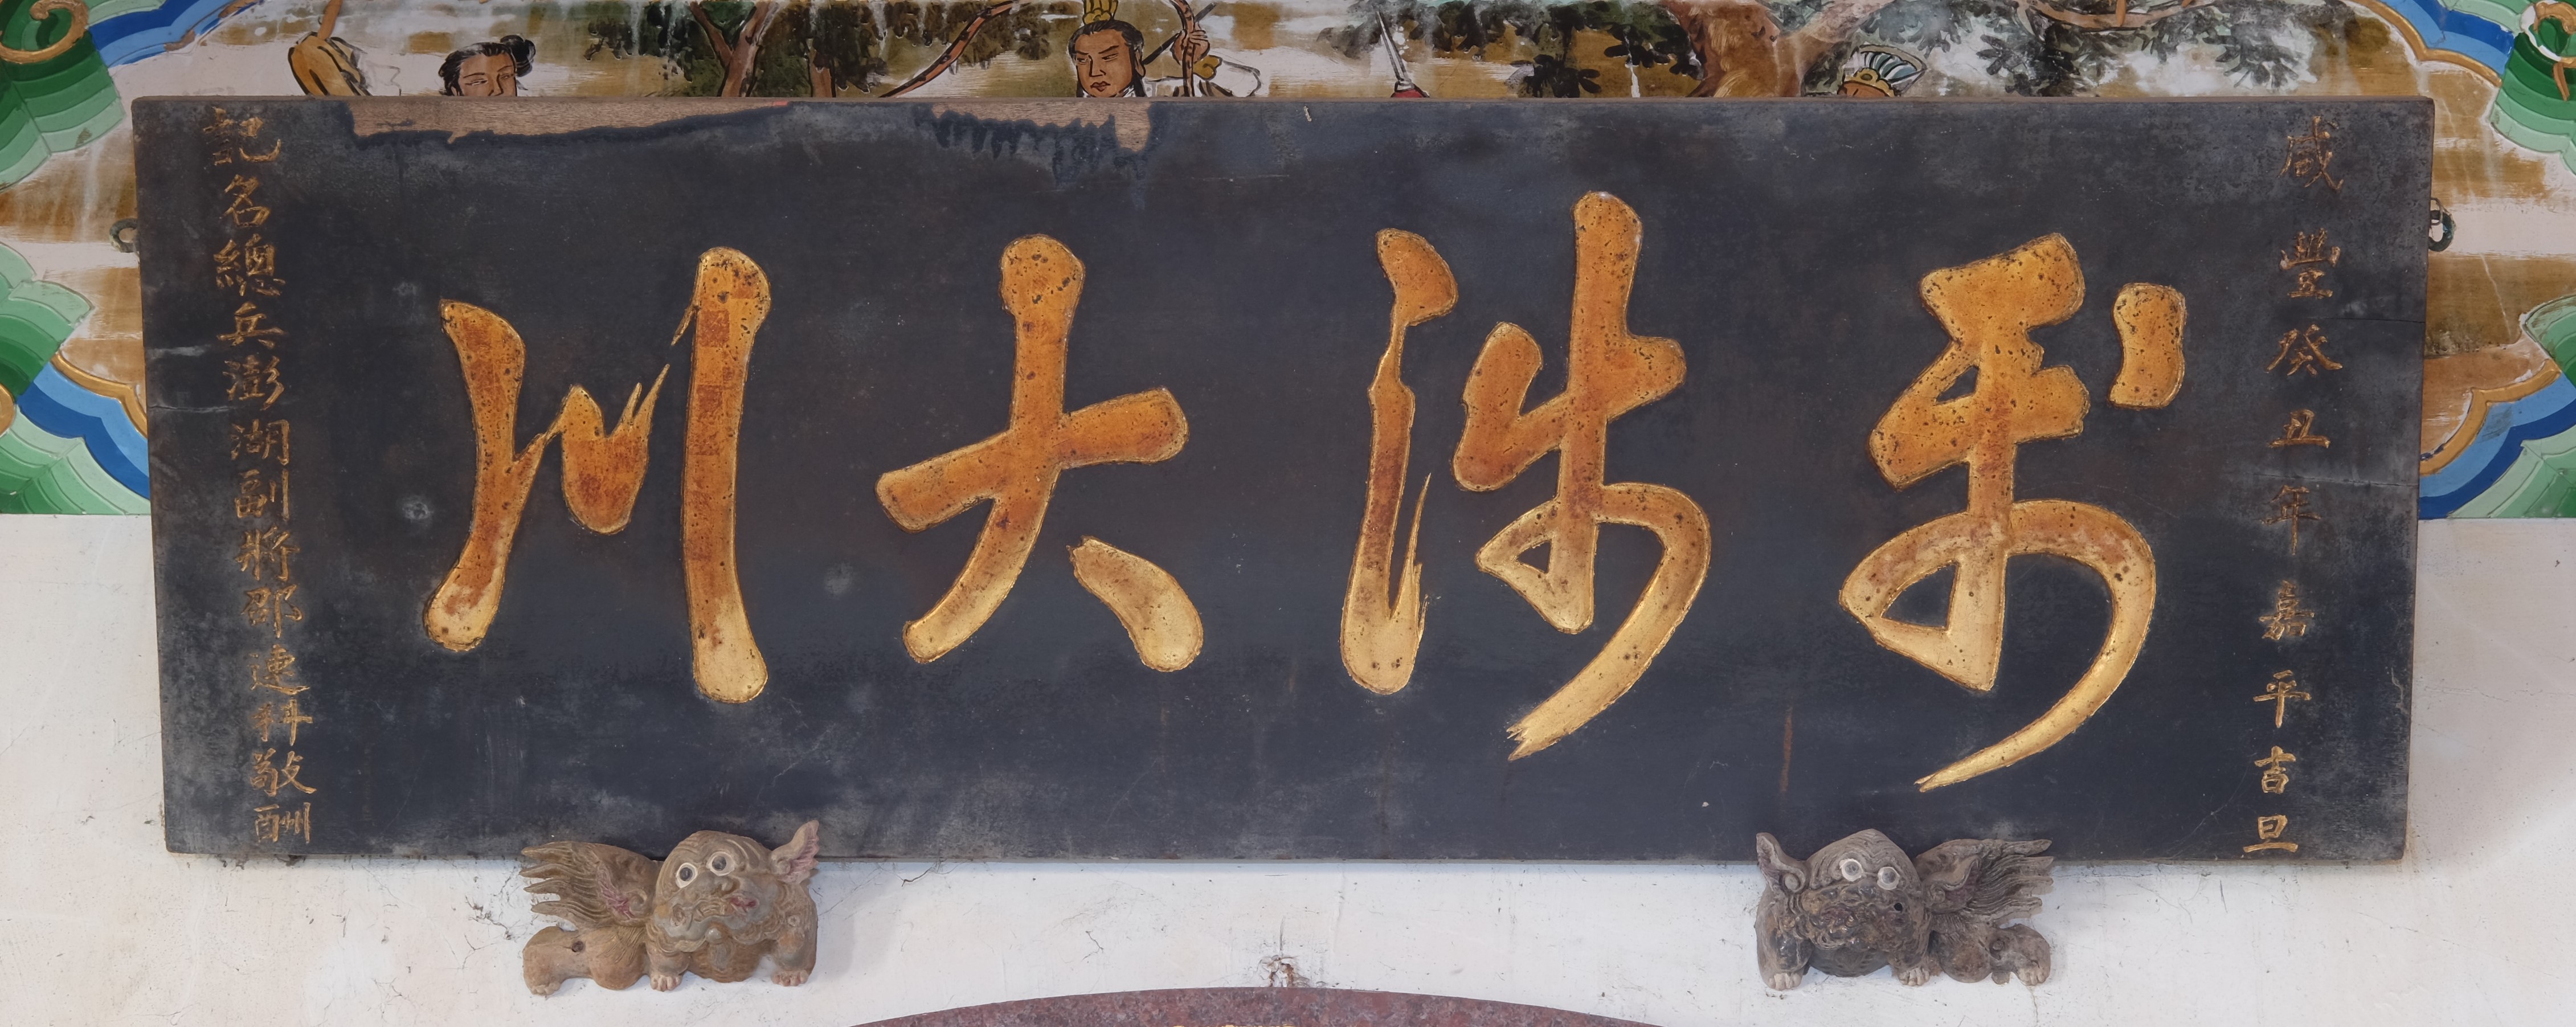 咸豐癸丑年嘉平吉旦
利涉大川
記名總兵澎湖副將邵連科敬酬